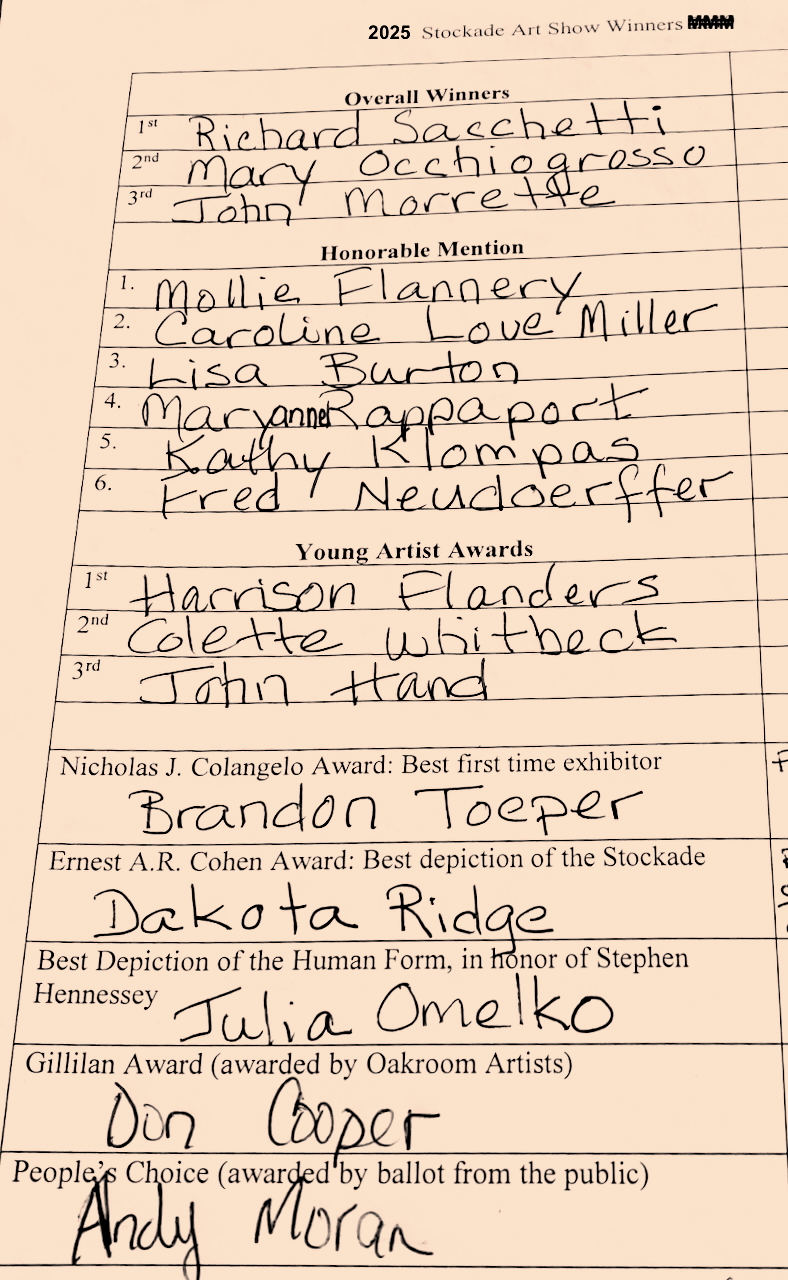 2025 Stockade Art Show Winners
Overall Winners
1st Richard Sacchetti
2nd Mary Occhiogrosso
3rd John Morrette
Honorable Mention
1. Mollie Flannery
2. Caroline Love Miller
3. Lisa Burton
4. Maryanne Rappaport
5. Kathy Klompas
6. Fred Neudoerffer
Young Artist Awards
1st Harrison Flanders
2nd Colette Whitbeck
3rd John Hand
Nicholas J. Colangelo Award: Best first time exhibitor
Brandon Toeper
Ernest A.R. Cohen Award: Best depiction of the Stockade
Dakota Ridge
Best Depiction of the Human Form, in honor of Stephen
Hennessey Julia Omelko
Gillilan Award (awarded by Oakroom Artists)
Don Cooper
People's Choice (awarded by ballot from the public)
Andy Moran